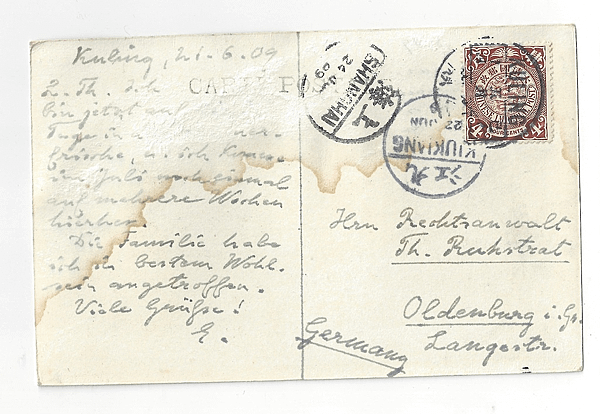 Kuling, 21.6.09
L. Th. Ich
CARTE POS
bin jetzt auf
Tage in
frische, u. ich komme
im Juli noch einmal
auf mehrere Wochen
hierher.
Die Familie habe
ich in bestem Wohl-
sein angetroffen.
Viele Grüße!
E.
SHANGHAI
24 JU
09
海上
KIUKIANG
22
JUN
江九
4
Hrn Rechtsanwalt
Th. Ruhstrat
Oldenburg i. Gr.
Langestr.
Germany